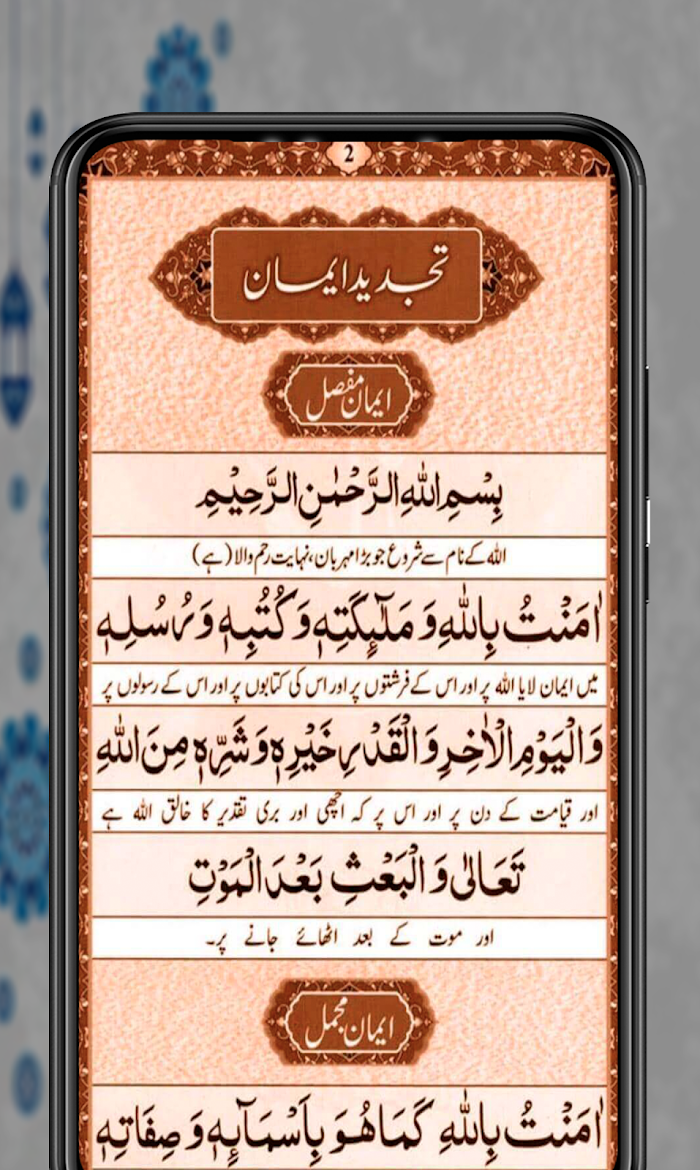 2
تجدید ایمان
ایمان مفصل
بِسْمِ اللهِ الرَّحْمٰنِ الرَّحِيْمِ
اللہ کے نام سے شروع جو بڑا مہربان، نہایت رحم والا (ہے)
اٰمَنْتُ بِاللهِ وَ مَلٰٓئِكَتِهٖ وَ كُتُبِهٖ وَ رُسُلِهٖ
میں ایمان لایا اللہ پر اور اس کے فرشتوں پر اور اس کی کتابوں پر اور اس کے رسولوں پر
وَالْيَوْمِ الْاٰخِرِ وَ الْقَدْرِ خَيْرِهٖ وَ شَرِّهٖ مِنَ اللهِ
اور قیامت کے دن پر اور اس پر کہ اچھی اور بری تقدیر کا خالق اللہ ہے
تَعَالٰى وَ الْبَعْثِ بَعْدَ الْمَوْتِ
اور موت کے بعد اٹھائے جانے پر۔
ایمان مجمل
اٰمَنْتُ بِاللهِ كَمَا هُوَ بِاَسْمَآئِهٖ وَ صِفَاتِهٖ